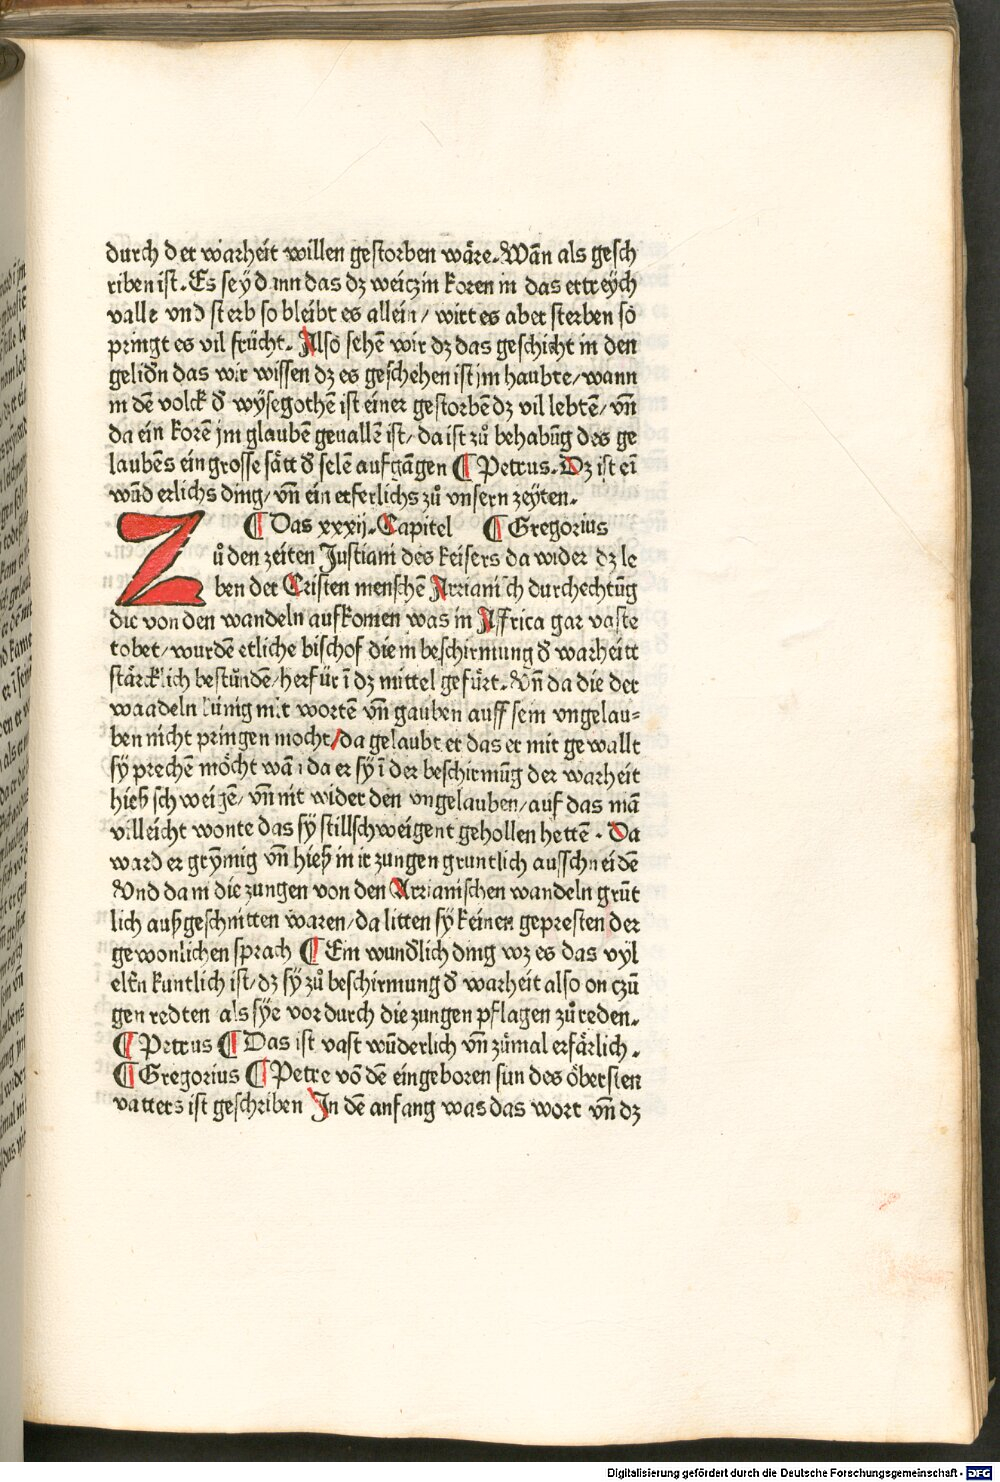 durch der warheit willen gestorben wäre. Wān als gesch
riben ist. Es sey dann das dz weiczin koren in das ertreych
valle vnd sterb so bleibt es allein / wirt es aber sterben so
pringt es vil frücht. Also sehē wir dz das geschicht in den
gelidn̄ das wir wissen dz es geschehen ist jm haubte / wann
in dē volck d̄ wysegothē ist einer gestorbē dz vil lebtē / vn̄
da ein korē jm glaubē geuallē ist / da ist zů behabūg des ge
laubēs ein grosse sätt d̄ selē aufgāngen ¶ Petrus. Dz ist eī
wūd erlichs ding / vn̄ ein erferlichs zů vnsern zeyten.
¶ Das xxxij. Capitel ¶ Gregorius
Zů den zeiten Justiani des keisers da wider dz le
ben der Cristen menschē Arriani ch durchechtūg
die von den wandeln aufkomen was in Affrica gar vaste
tobet / wurdē etliche bischof die in beschirmung d̄ warheitt
stärcklich bestůndē / herfür ī dz mittel gefürt. Vn̄ da die der
waadeln künig mit wortē vn̄ gauben auff sein vngelau=
ben nicht pringen mocht / da gelaubt er das er mit gewallt
sy prechē möcht wā i da er sy ī der beschirmūg der warheit
hieß schweigē / vn̄ nit wider den vngelauben / auf das mā
villeicht wonte das sy stillschweigent gehollen hettē. Da
ward er grym̄ig vn̄ hieß in ir zungen gruntlich ausschneidē
Vnd da in die zungen von den Arrianischen wandeln grūt
lich außgeschnitten waren / da litten sy keinen gepresten der
gewonlichen sprach ¶ Ein wund̄lich ding wz es das vyl
eltn̄ kuntlich ist / dz sy zů beschirmung d̄ warheit also on czū
gen redten als sye vor durch die zungen pflagen zů reden.
¶ Petrus ¶ Das ist vast wūderlich vn̄ zůmal erfärlich.
¶ Gregorius ¶ Petre vō dē eingeboren sun des öbersten
vatters ist geschriben In dē anfang was das wort vn̄ dz
Digitalisierung gefördert durch die Deutsche Forschungsgemeinschaft - DFG